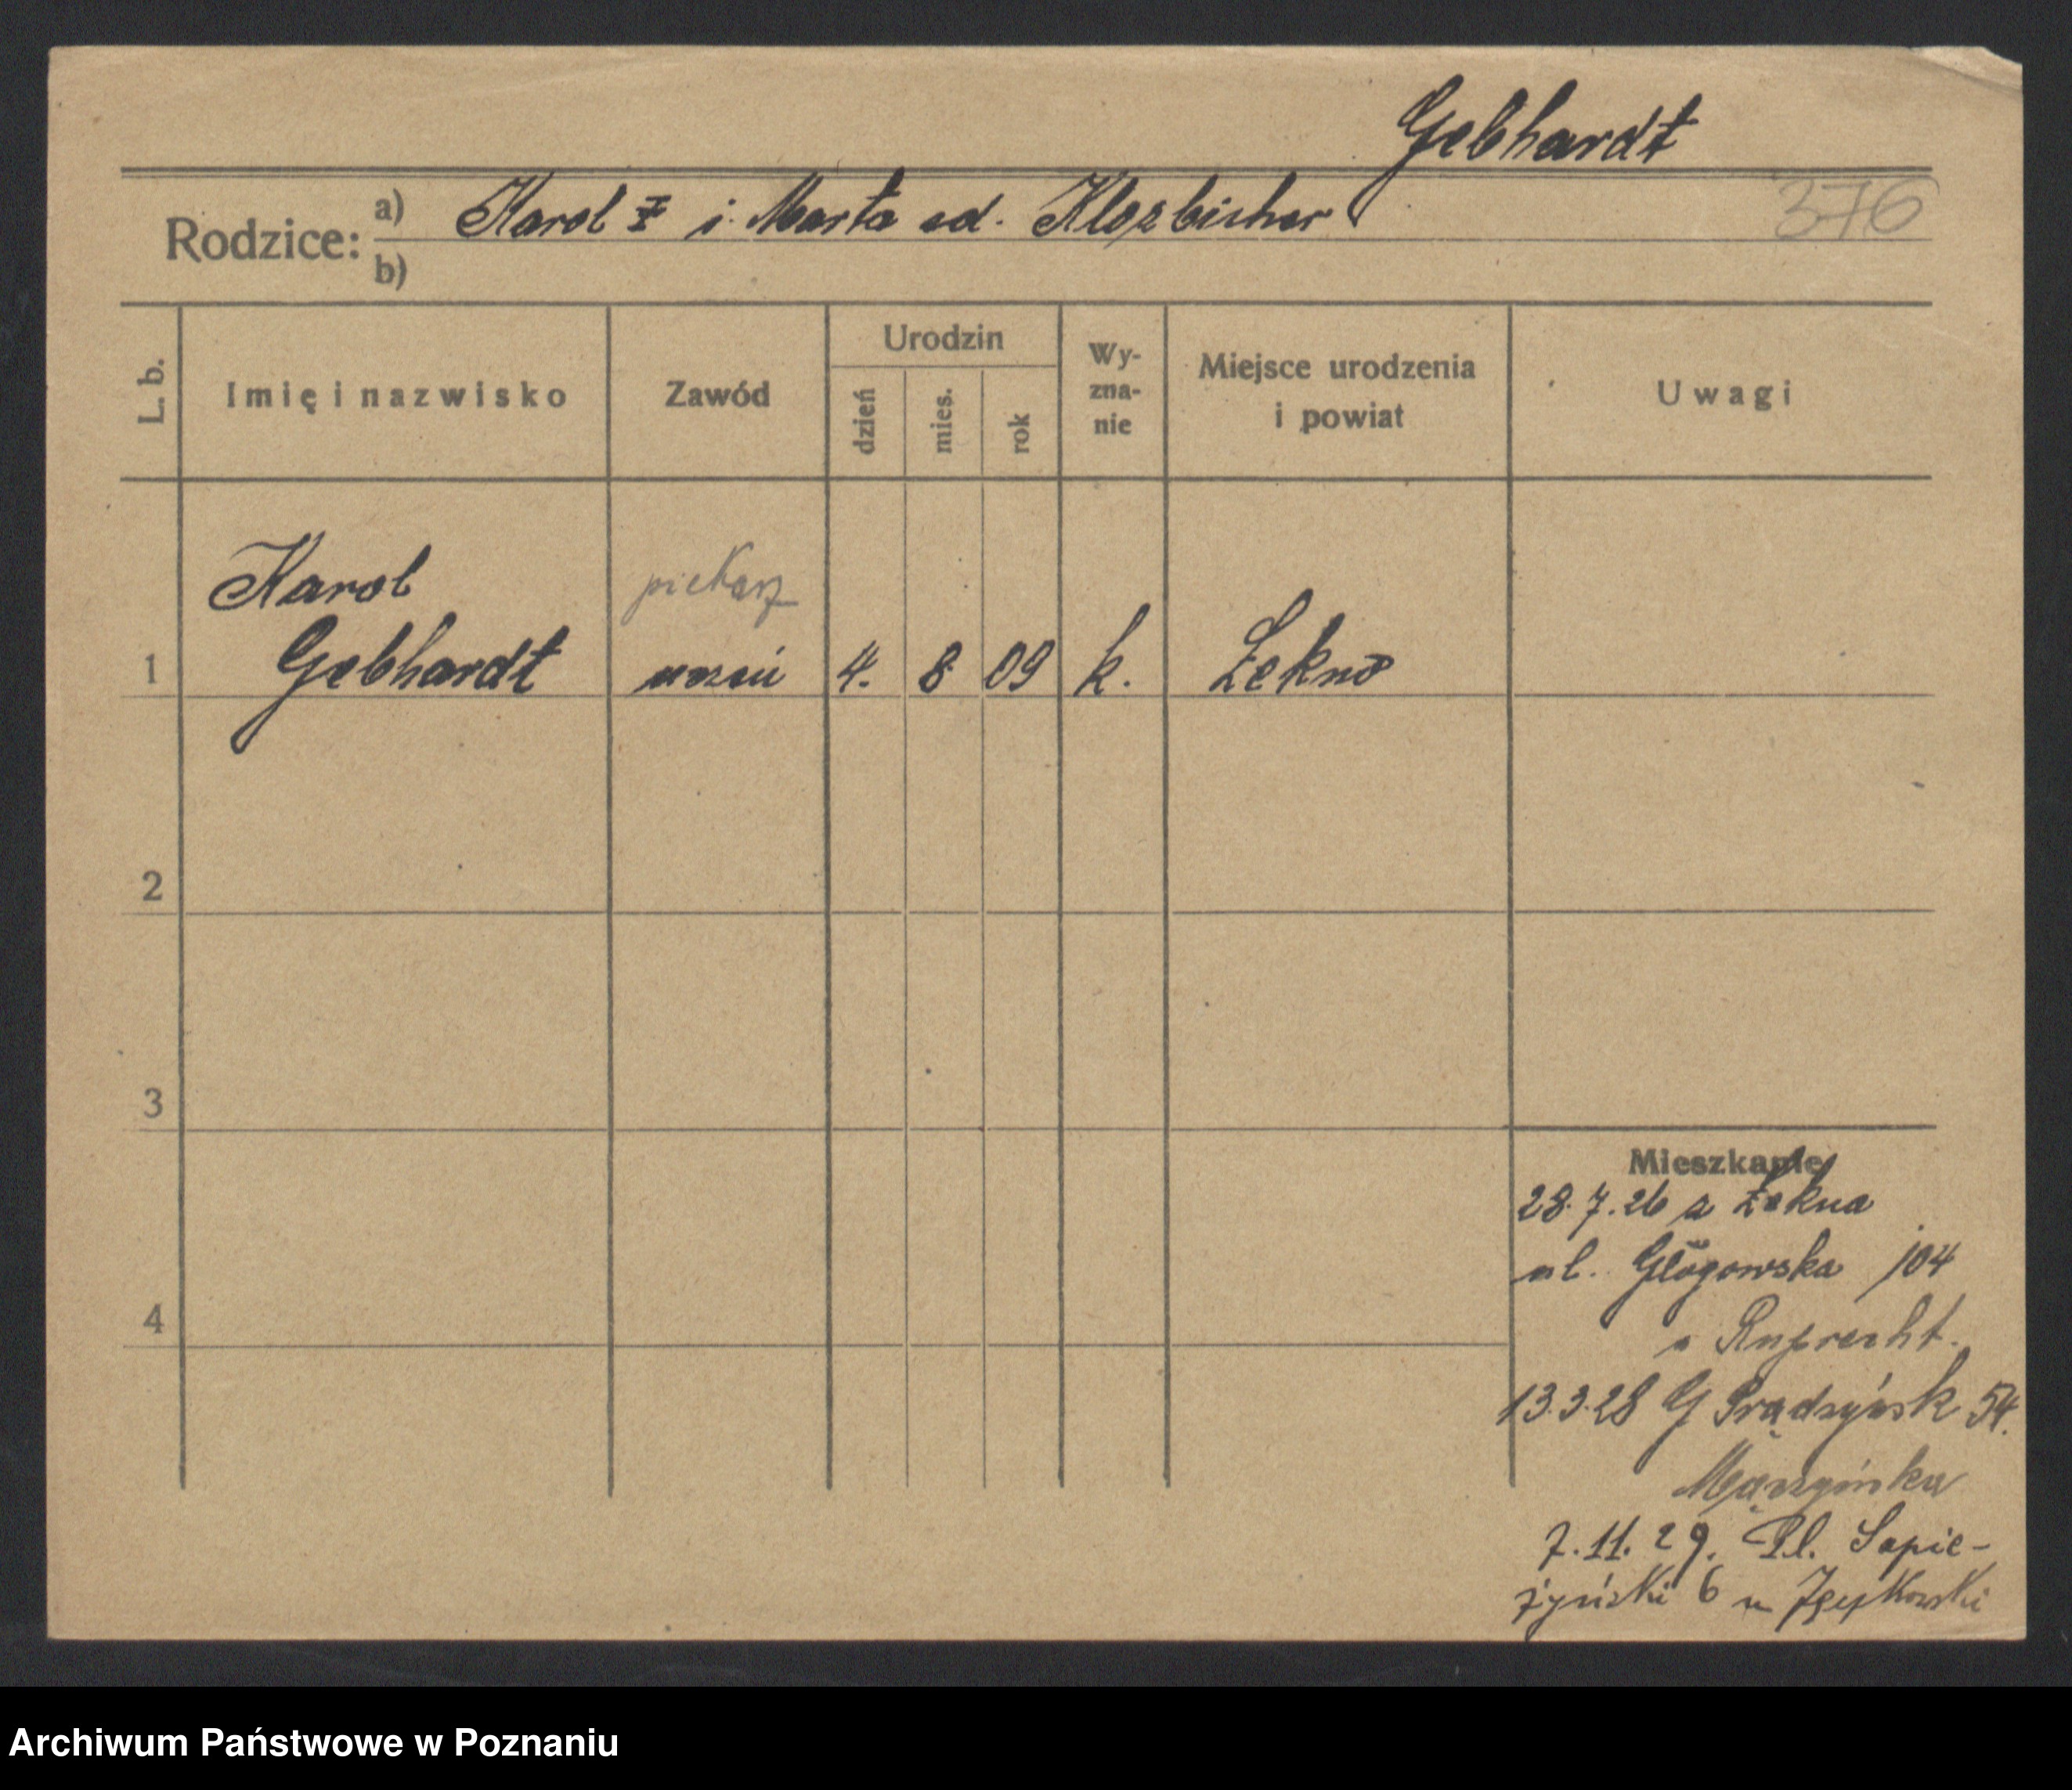 Gebhardt
376
Rodzice: a) Karol I i Marta ed. Klozbicher
b)
L. b. Imię i nazwisko Zawód Urodzin dzień mies. rok Wy-zna-nie Miejsce urodzenia i powiat Uwagi
Karol piekarz
1 Gebhardt uczeń 4. 8 09 k. Łekno
2
3
Mieszkanie
28.7.26 z Łekna
ul. Głogowska 104
4
u Ruprecht.
13.3.28 G Prądzyńsk 54.
7.11.29. Pl. Sapie-
żyński 6 u
Archiwum Państwowe w Poznaniu